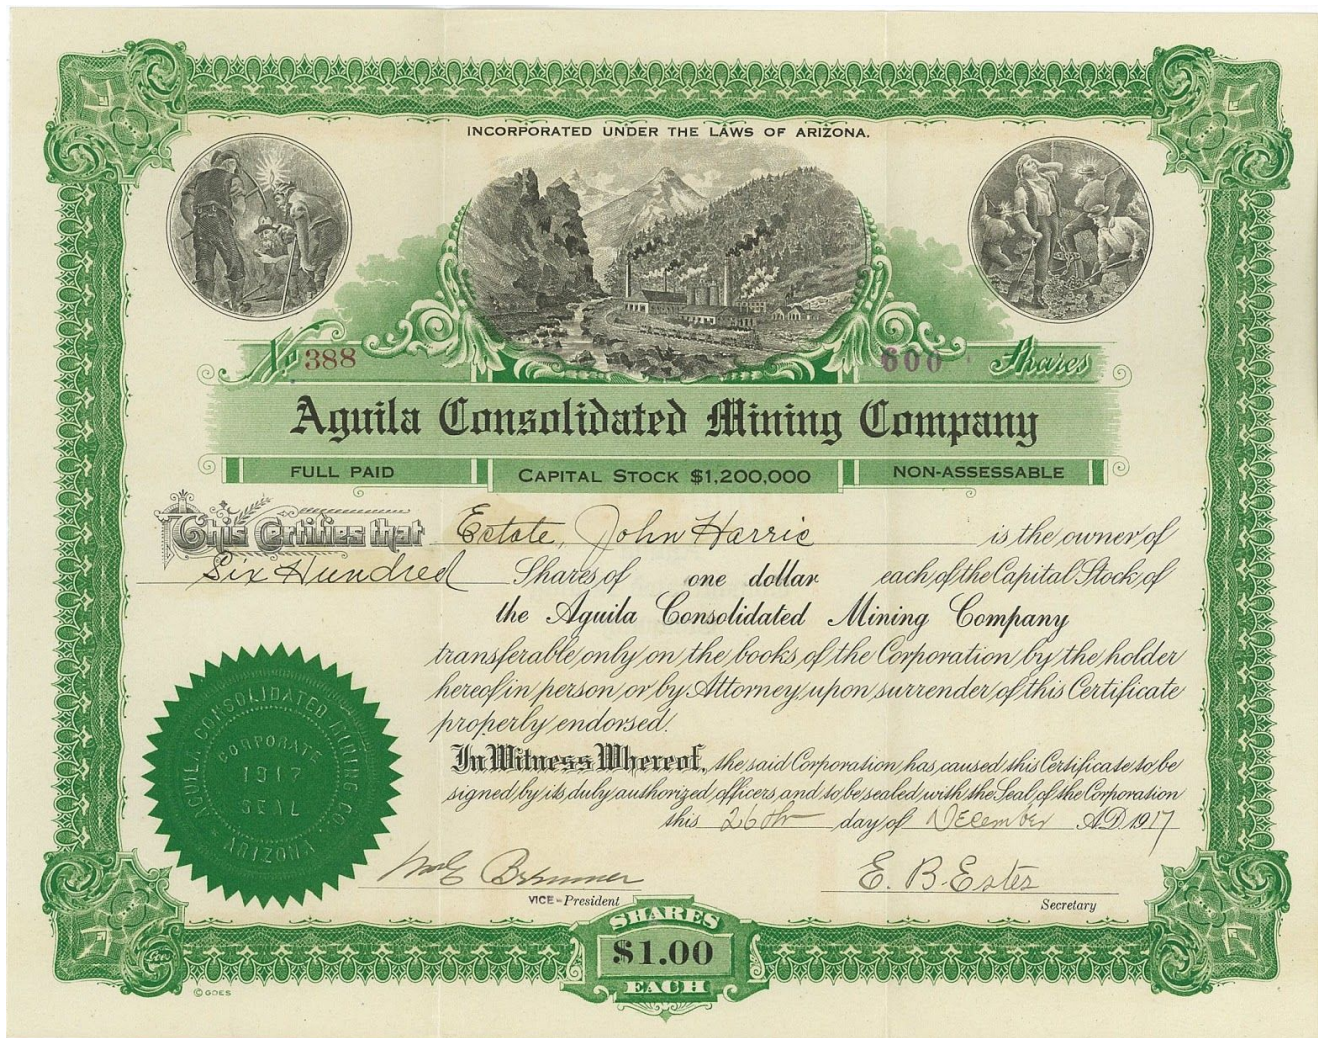 INCORPORATED UNDER THE LAWS OF ARIZONA.
No. 388
600 Shares
Aguila Consolidated Mining Company
FULL PAID
CAPITAL STOCK $1,200,000
NON-ASSESSABLE
This Certifies that Estate, John Harris is the owner of
Six Hundred Shares of one dollar each of the Capital Stock of
the Aguila Consolidated Mining Company
transferable only on the books of the Corporation by the holder
hereof in person or by Attorney upon surrender of this Certificate
properly endorsed.
In Witness Whereof, the said Corporation has caused this Certificate to be
signed by its duly authorized officers and to be sealed with the Seal of the Corporation
this 26th day of December A.D. 1917
AGUILA CONSOLIDATED MINING CO.
CORPORATE
1917
SEAL
ARIZONA
E. B. Estes
VICE-President
Secretary
SHARES
$1.00
EACH
© GOES